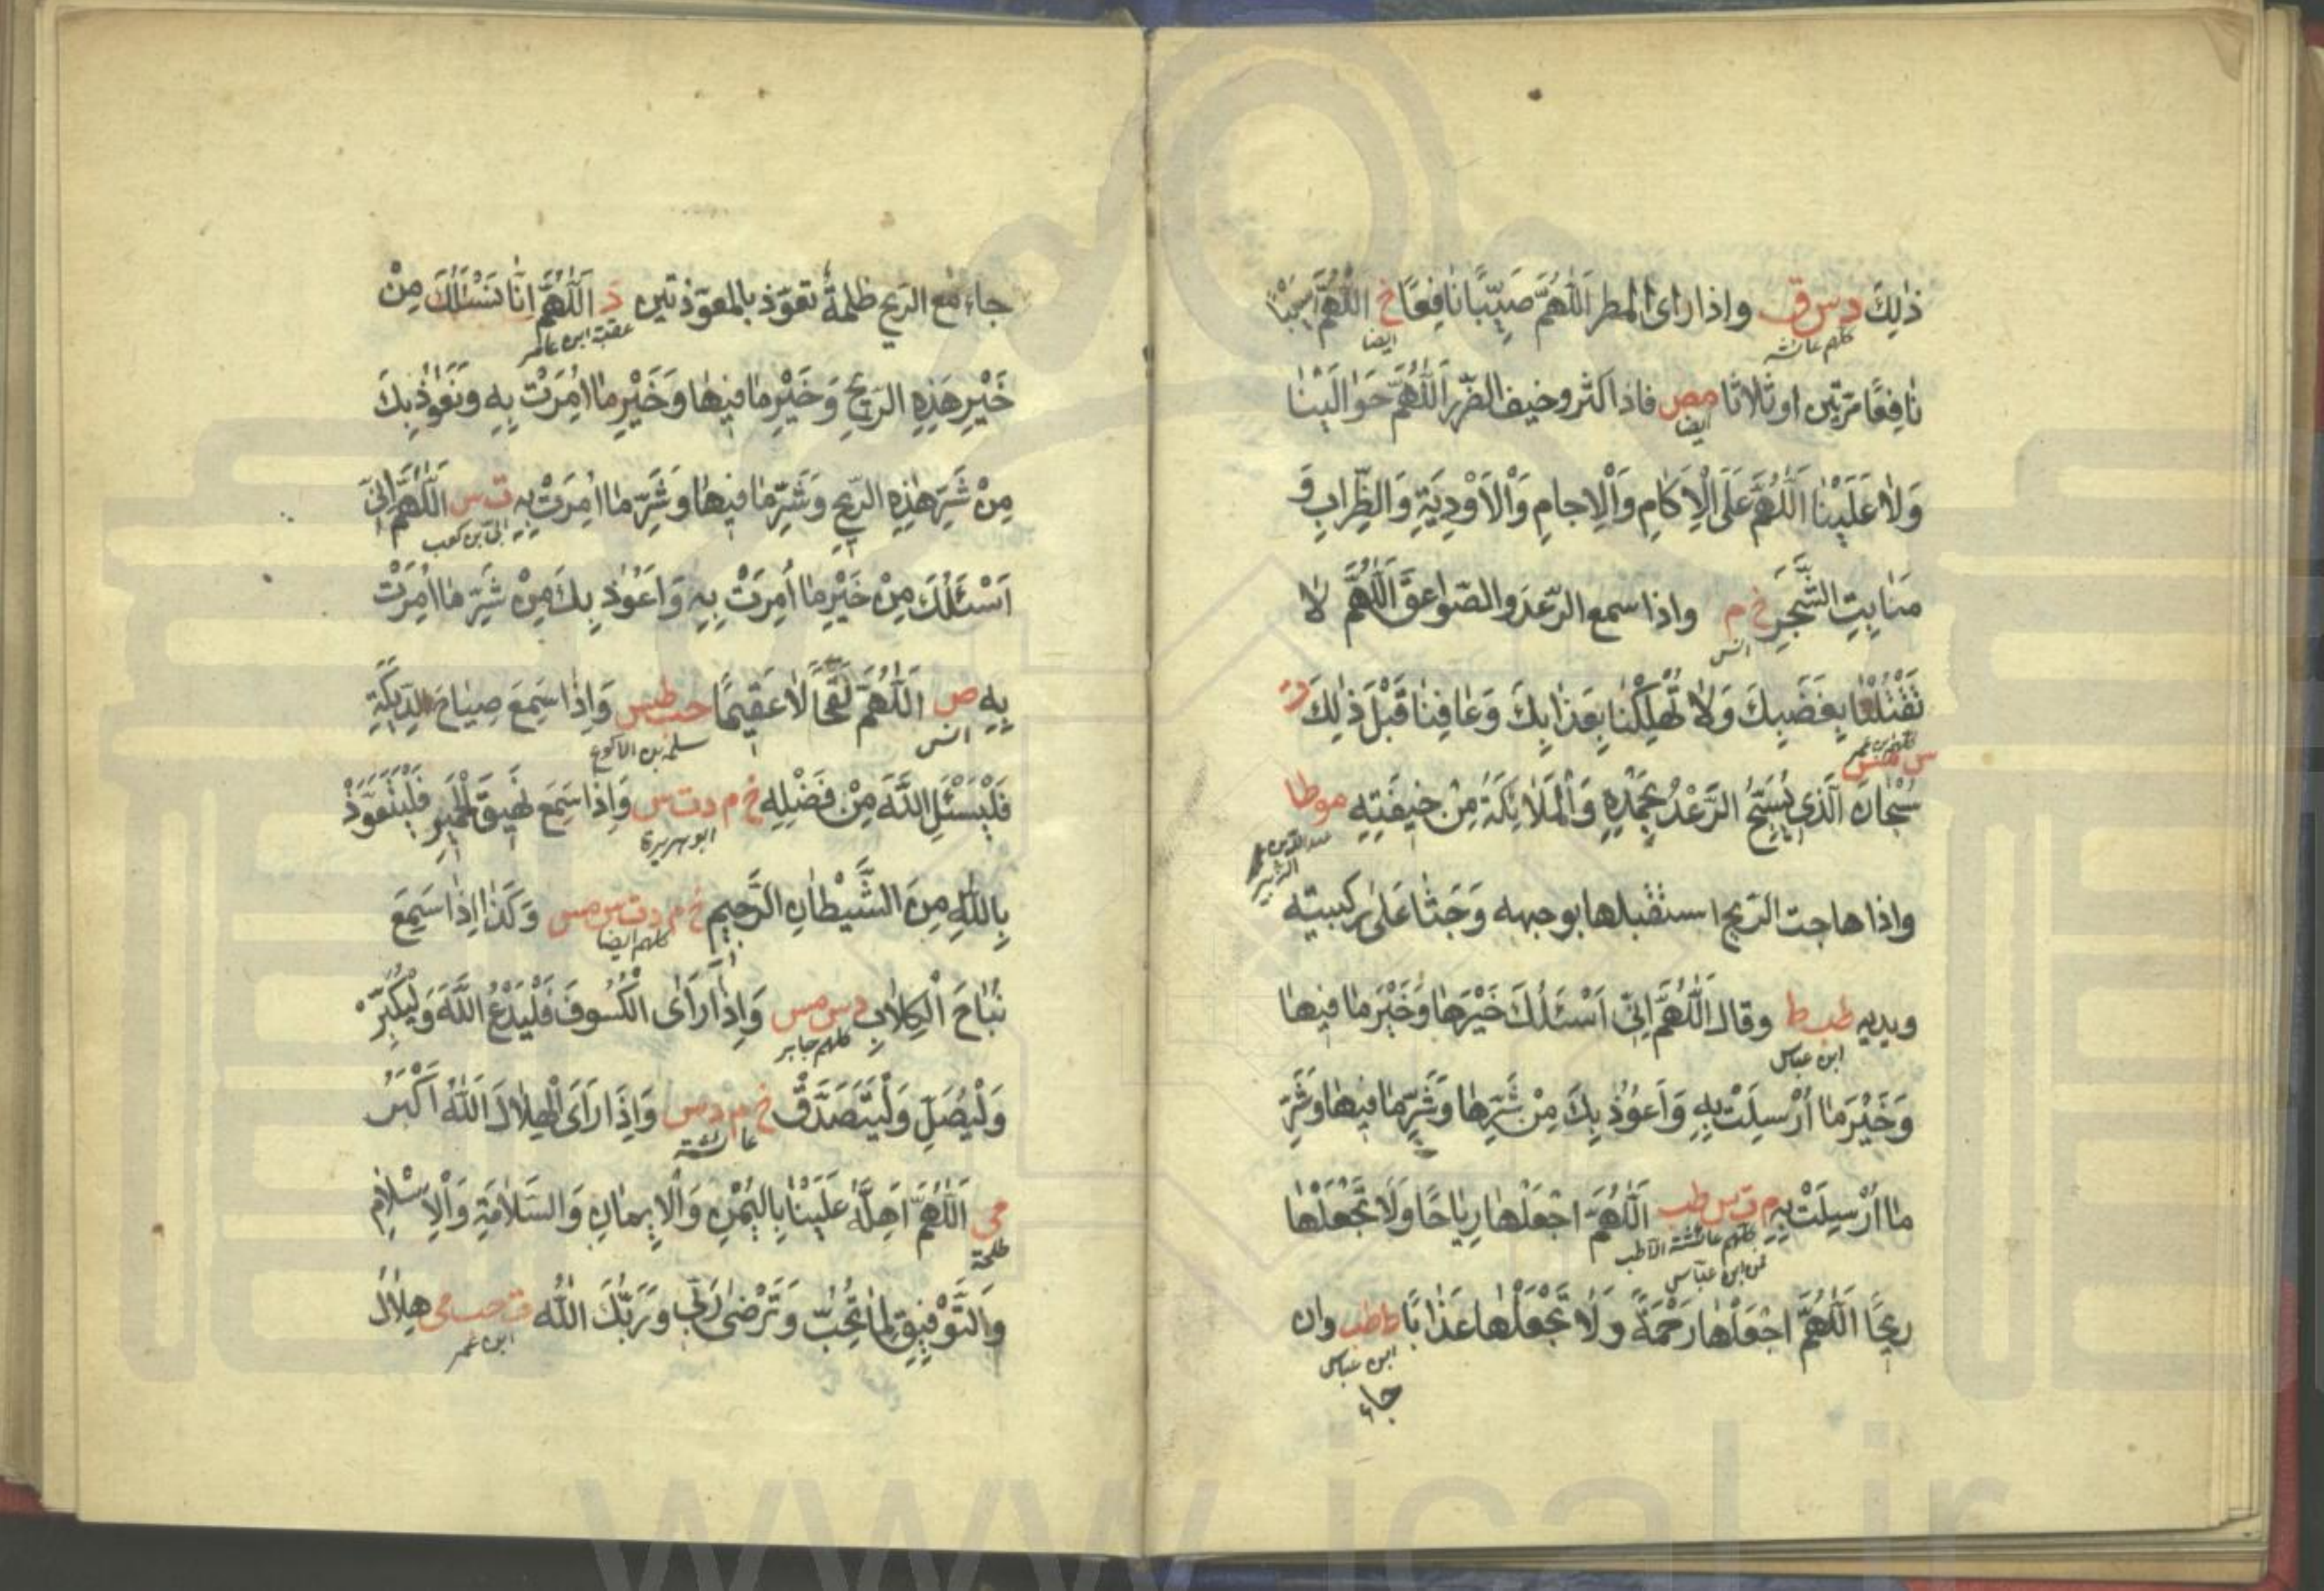 ذٰلِكَ د س ق واذا رای المطر اَللّٰهُمَّ صَيِّبًا نَافِعًا خ اَللّٰهُمَّ
كلهم عائشه
ايضا
نَافِعًا مرّتين او ثلاثا مص فاذا كثر وخيف الضّرر اَللّٰهُمَّ حَوَالَيْنَا
ايضا
وَلَا عَلَيْنَا اَللّٰهُمَّ عَلَى الْاِكَامِ وَالْاٰجَامِ وَالْاَوْدِيَةِ وَالظِّرَابِ وَ
مَنَابِتِ الشَّجَرِ خ م واذا سمع الرّعد والصّواعق اَللّٰهُمَّ لَا
انس
تَقْتُلْنَا بِغَضَبِكَ وَلَا تُهْلِكْنَا بِعَذَابِكَ وَعَافِنَا قَبْلَ ذٰلِكَ ت
س مس
سُبْحَانَ الَّذِي يُسَبِّحُ الرَّعْدُ بِحَمْدِهِ وَالْمَلَائِكَةُ مِنْ خِيفَتِهِ موطا
عبد الله بن
الزبير
واذا هاجت الريح استقبلها بوجهه وَجَثَا عَلٰى رُكْبَتَيْهِ
ويديه طب ط وقال اَللّٰهُمَّ اِنِّي اَسْئَلُكَ خَيْرَهَا وَخَيْرَ مَا فِيهَا
ابن عباس
وَخَيْرَ مَا اُرْسِلَتْ بِهِ وَاَعُوذُ بِكَ مِنْ شَرِّهَا وَشَرِّ مَا فِيهَا وَشَرِّ
مَا اُرْسِلَتْ بِهِ م ت س طب اَللّٰهُمَّ اجْعَلْهَا رِيَاحًا وَلَا تَجْعَلْهَا
كلهم عائشة الا طب
عن ابن عباس
رِيحًا اَللّٰهُمَّ اجْعَلْهَا رَحْمَةً وَلَا تَجْعَلْهَا عَذَابًا ط طب وان
ابن عباس
جاء
جاء مع الريح ظلمةٌ تعوّذ بالمعوّذتين د اَللّٰهُمَّ اِنَّا نَسْئَلُكَ مِنْ
عقبة ابن عامر
خَيْرِ هَذِهِ الرِّيحِ وَخَيْرِ مَا فِيهَا وَخَيْرِ مَا اُمِرَتْ بِهِ وَنَعُوذُ بِكَ
مِنْ شَرِّ هٰذِهِ الرِّيحِ وَشَرِّ مَا فِيهَا وَشَرِّ مَا اُمِرَتْ بِهِ ت س اَللّٰهُمَّ اِنِّي
ابي بن كعب
اَسْئَلُكَ مِنْ خَيْرِ مَا اُمِرَتْ بِهِ وَاَعُوذُ بِكَ مِنْ شَرِّ مَا اُمِرَتْ
بِهِ ص اَللّٰهُمَّ لَقَحًا لَا عَقِيمًا حب طس وَاِذَا سَمِعَ صِيَاحَ الدِّيَكَةِ
انس
سلمه بن الاكوع
فَلْيَسْئَلِ اللّٰهَ مِنْ فَضْلِهِ خ م د ت س وَاِذَا سَمِعَ نَهِيقَ الْحَمِيرِ فَلْيَتَعَوَّذْ
ابو هريرة
بِاللّٰهِ مِنَ الشَّيْطَانِ الرَّجِيمِ خ م د ت س مس وَكَذَا اِذَا سَمِعَ
كلهم ايضا
نُبَاحَ الْكِلَابِ د س مس وَاِذَا رَاَى الْكُسُوفَ فَلْيَدْعُ اللّٰهَ وَلْيُكَبِّرْ
كلهم جابر
وَلْيُصَلِّ وَلْيَتَصَدَّقْ خ م د س وَاِذَا رَاَى الْهِلَالَ اَللّٰهُ اَكْبَرُ
عائشة
مي اَللّٰهُمَّ اَهِلَّهُ عَلَيْنَا بِالْيُمْنِ وَالْاِيمَانِ وَالسَّلَامَةِ وَالْاِسْلَامِ
طلحة
وَالتَّوْفِيقِ لِمَا تُحِبُّ وَتَرْضٰى رَبِّي وَرَبُّكَ اللّٰهُ ت حب مي هِلَالُ
ابن عمر
www.ical.ir